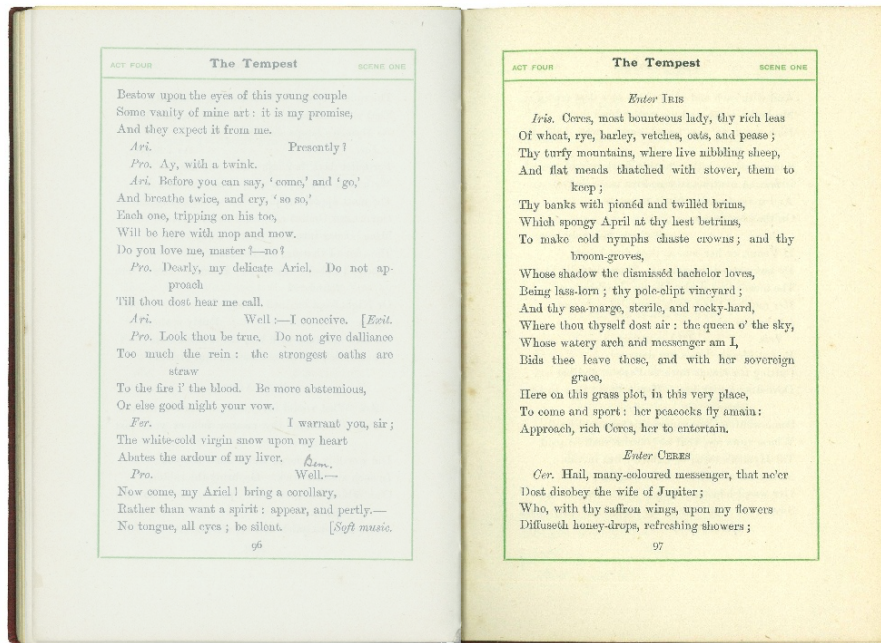 ACT FOUR The Tempest SCENE ONE
Bestow upon the eyes of this young couple
Some vanity of mine art: it is my promise,
And they expect it from me.
Ari. Presently?
Pro. Ay, with a twink.
Ari. Before you can say, ‘come,’ and ‘go,’
And breathe twice, and cry, ‘so so,’
Each one, tripping on his toe,
Will be here with mop and mow.
Do you love me, master?—no?
Pro. Dearly, my delicate Ariel. Do not ap-
proach
Till thou dost hear me call.
Ari. Well:—I conceive. [Exit.
Pro. Look thou be true. Do not give dalliance
Too much the rein: the strongest oaths are
straw
To the fire i’ the blood. Be more abstemious,
Or else good night your vow.
Fer. I warrant you, sir;
The white-cold virgin snow upon my heart
Abates the ardour of my liver.
Pro. Well.—
Now come, my Ariel! bring a corollary,
Rather than want a spirit: appear, and pertly.—
No tongue, all eyes; be silent. [Soft music.
96
ACT FOUR The Tempest SCENE ONE
Enter IRIS
Iris. Ceres, most bounteous lady, thy rich leas
Of wheat, rye, barley, vetches, oats, and pease;
Thy turfy mountains, where live nibbling sheep,
And flat meads thatched with stover, them to
keep;
Thy banks with pionéd and twilléd brims,
Which spongy April at thy hest betrims,
To make cold nymphs chaste crowns; and thy
broom-groves,
Whose shadow the dismisséd bachelor loves,
Being lass-lorn; thy pole-clipt vineyard;
And thy sea-marge, sterile, and rocky-hard,
Where thou thyself dost air: the queen o’ the sky,
Whose watery arch and messenger am I,
Bids thee leave these, and with her sovereign
grace,
Here on this grass plot, in this very place,
To come and sport: her peacocks fly amain:
Approach, rich Ceres, her to entertain.
Enter CERES
Cer. Hail, many-coloured messenger, that ne’er
Dost disobey the wife of Jupiter;
Who, with thy saffron wings, upon my flowers
Diffuseth honey-drops, refreshing showers;
97